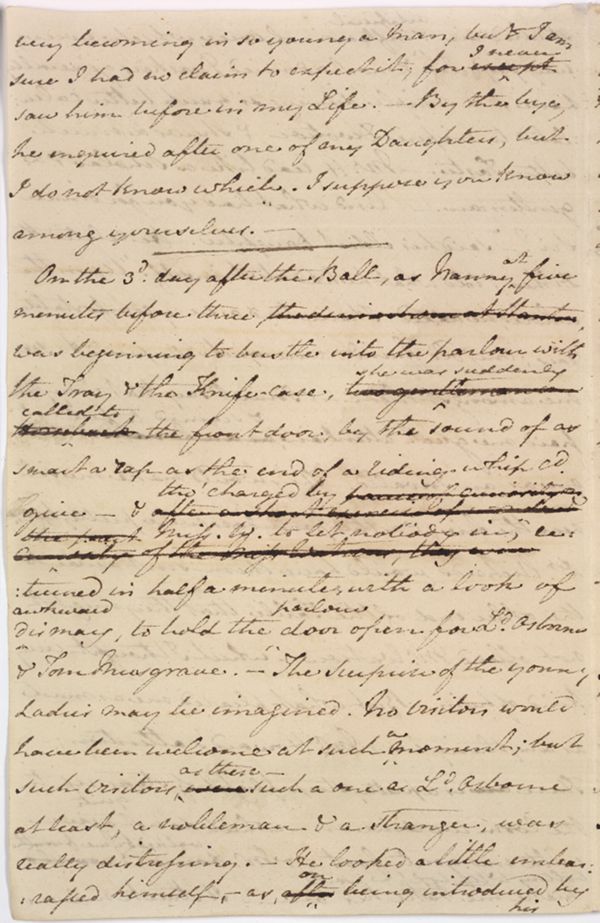 very becoming in so young a Man, but I am
sure I had no claim to expect it; for I never
saw him before in my Life. — By the bye,
he enquired after one of my Daughters, but
I do not know which. I suppose you know
among yourselves. —
On the 3.d day after the Ball, as Nanny at five
minutes before three
was beginning to bustle into the parlour with
the Tray & the Knife-case, two gentlemen on she was suddenly
horseback called to the front door, by the sound of as
smart a rap as the end of a riding-whip c.d
give — & tho' charged by
Miss W. to let nobody in, re:
curiosity of the Miss Watsons, they were
:turned in half a minute, with a look of
awkward dismay, to hold the parlour door open for L.d Osborne
& Tom Musgrave. — The Surprise of the young
Ladies may be imagined. No visitors would
have been welcome at such a moment; but
such visitors as these — such a one as L.d Osborne
at least, a nobleman & a stranger, was
really distressing. — He looked a little embar:
:rassed himself, — as, after on being introduced by
his